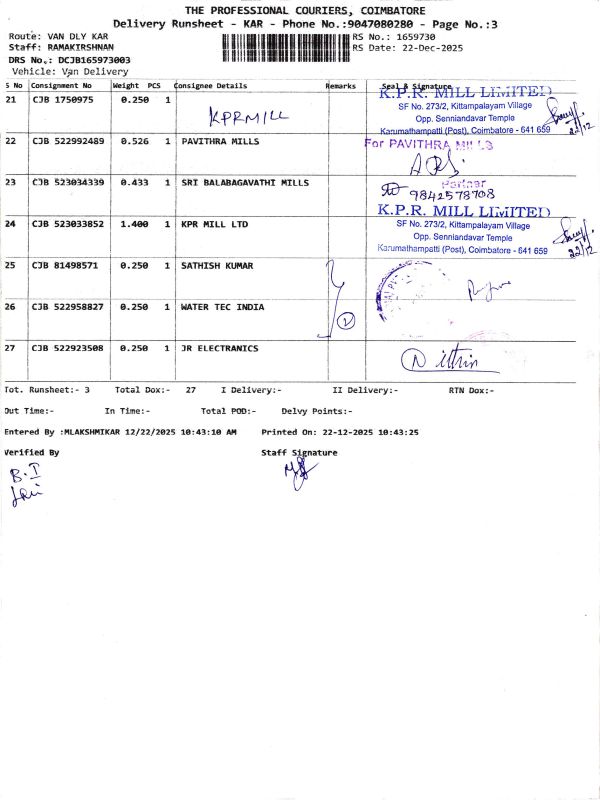 THE PROFESSIONAL COURIERS, COIMBATORE
Delivery Runsheet - KAR - Phone No.:9047080280 - Page No.:3
Route: VAN DLY KAR
RS No.: 1659730
Staff: RAMAKIRSHNAN
RS Date: 22-Dec-2025
DRS No.: DCJB165973003
Vehicle: Van Delivery
S No Consignment No Weight PCS Consignee Details Remarks Seal & Signature
21 CJB 1750975 0.250 1 KPRMILL
K.P.R. MILL LIMITED
SF No. 273/2, Kittampalayam Village
Opp. Senniandavar Temple
Karumathampatti (Post), Coimbatore - 641 659
22/12
22 CJB 522992489 0.526 1 PAVITHRA MILLS
For PAVITHRA MILLS
Partner
23 CJB 523034339 0.433 1 SRI BALABAGAVATHI MILLS
9842578708
24 CJB 523033852 1.400 1 KPR MILL LTD
K.P.R. MILL LIMITED
SF No. 273/2, Kittampalayam Village
Opp. Senniandavar Temple
Karumathampatti (Post), Coimbatore - 641 659
22/12
25 CJB 81498571 0.250 1 SATHISH KUMAR
26 CJB 522958827 0.250 1 WATER TEC INDIA
27 CJB 522923508 0.250 1 JR ELECTRANICS
Tot. Runsheet:- 3 Total Dox:- 27 I Delivery:- II Delivery:- RTN Dox:-
Out Time:- In Time:- Total POD:- Delvy Points:-
Entered By :MLAKSHMIKAR 12/22/2025 10:43:10 AM Printed On: 22-12-2025 10:43:25
Verified By Staff Signature
B.I